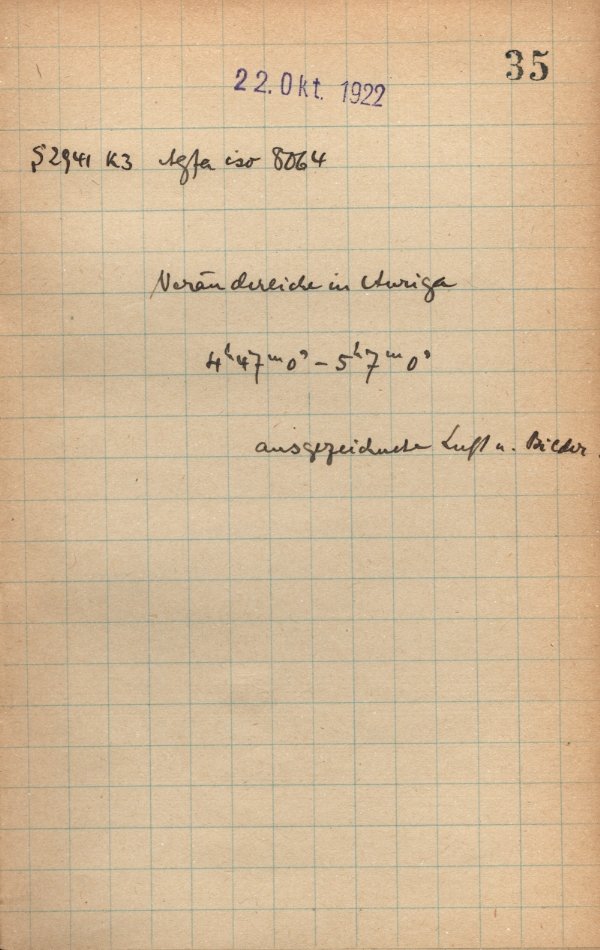 35
22. Okt. 1922
S 2941 K3 Agfa iso 8064
Veränderliche in Auriga
4ʰ47ᵐ0ˢ – 5ʰ7ᵐ0ˢ
ausgezeichnete Luft u. Bilder.